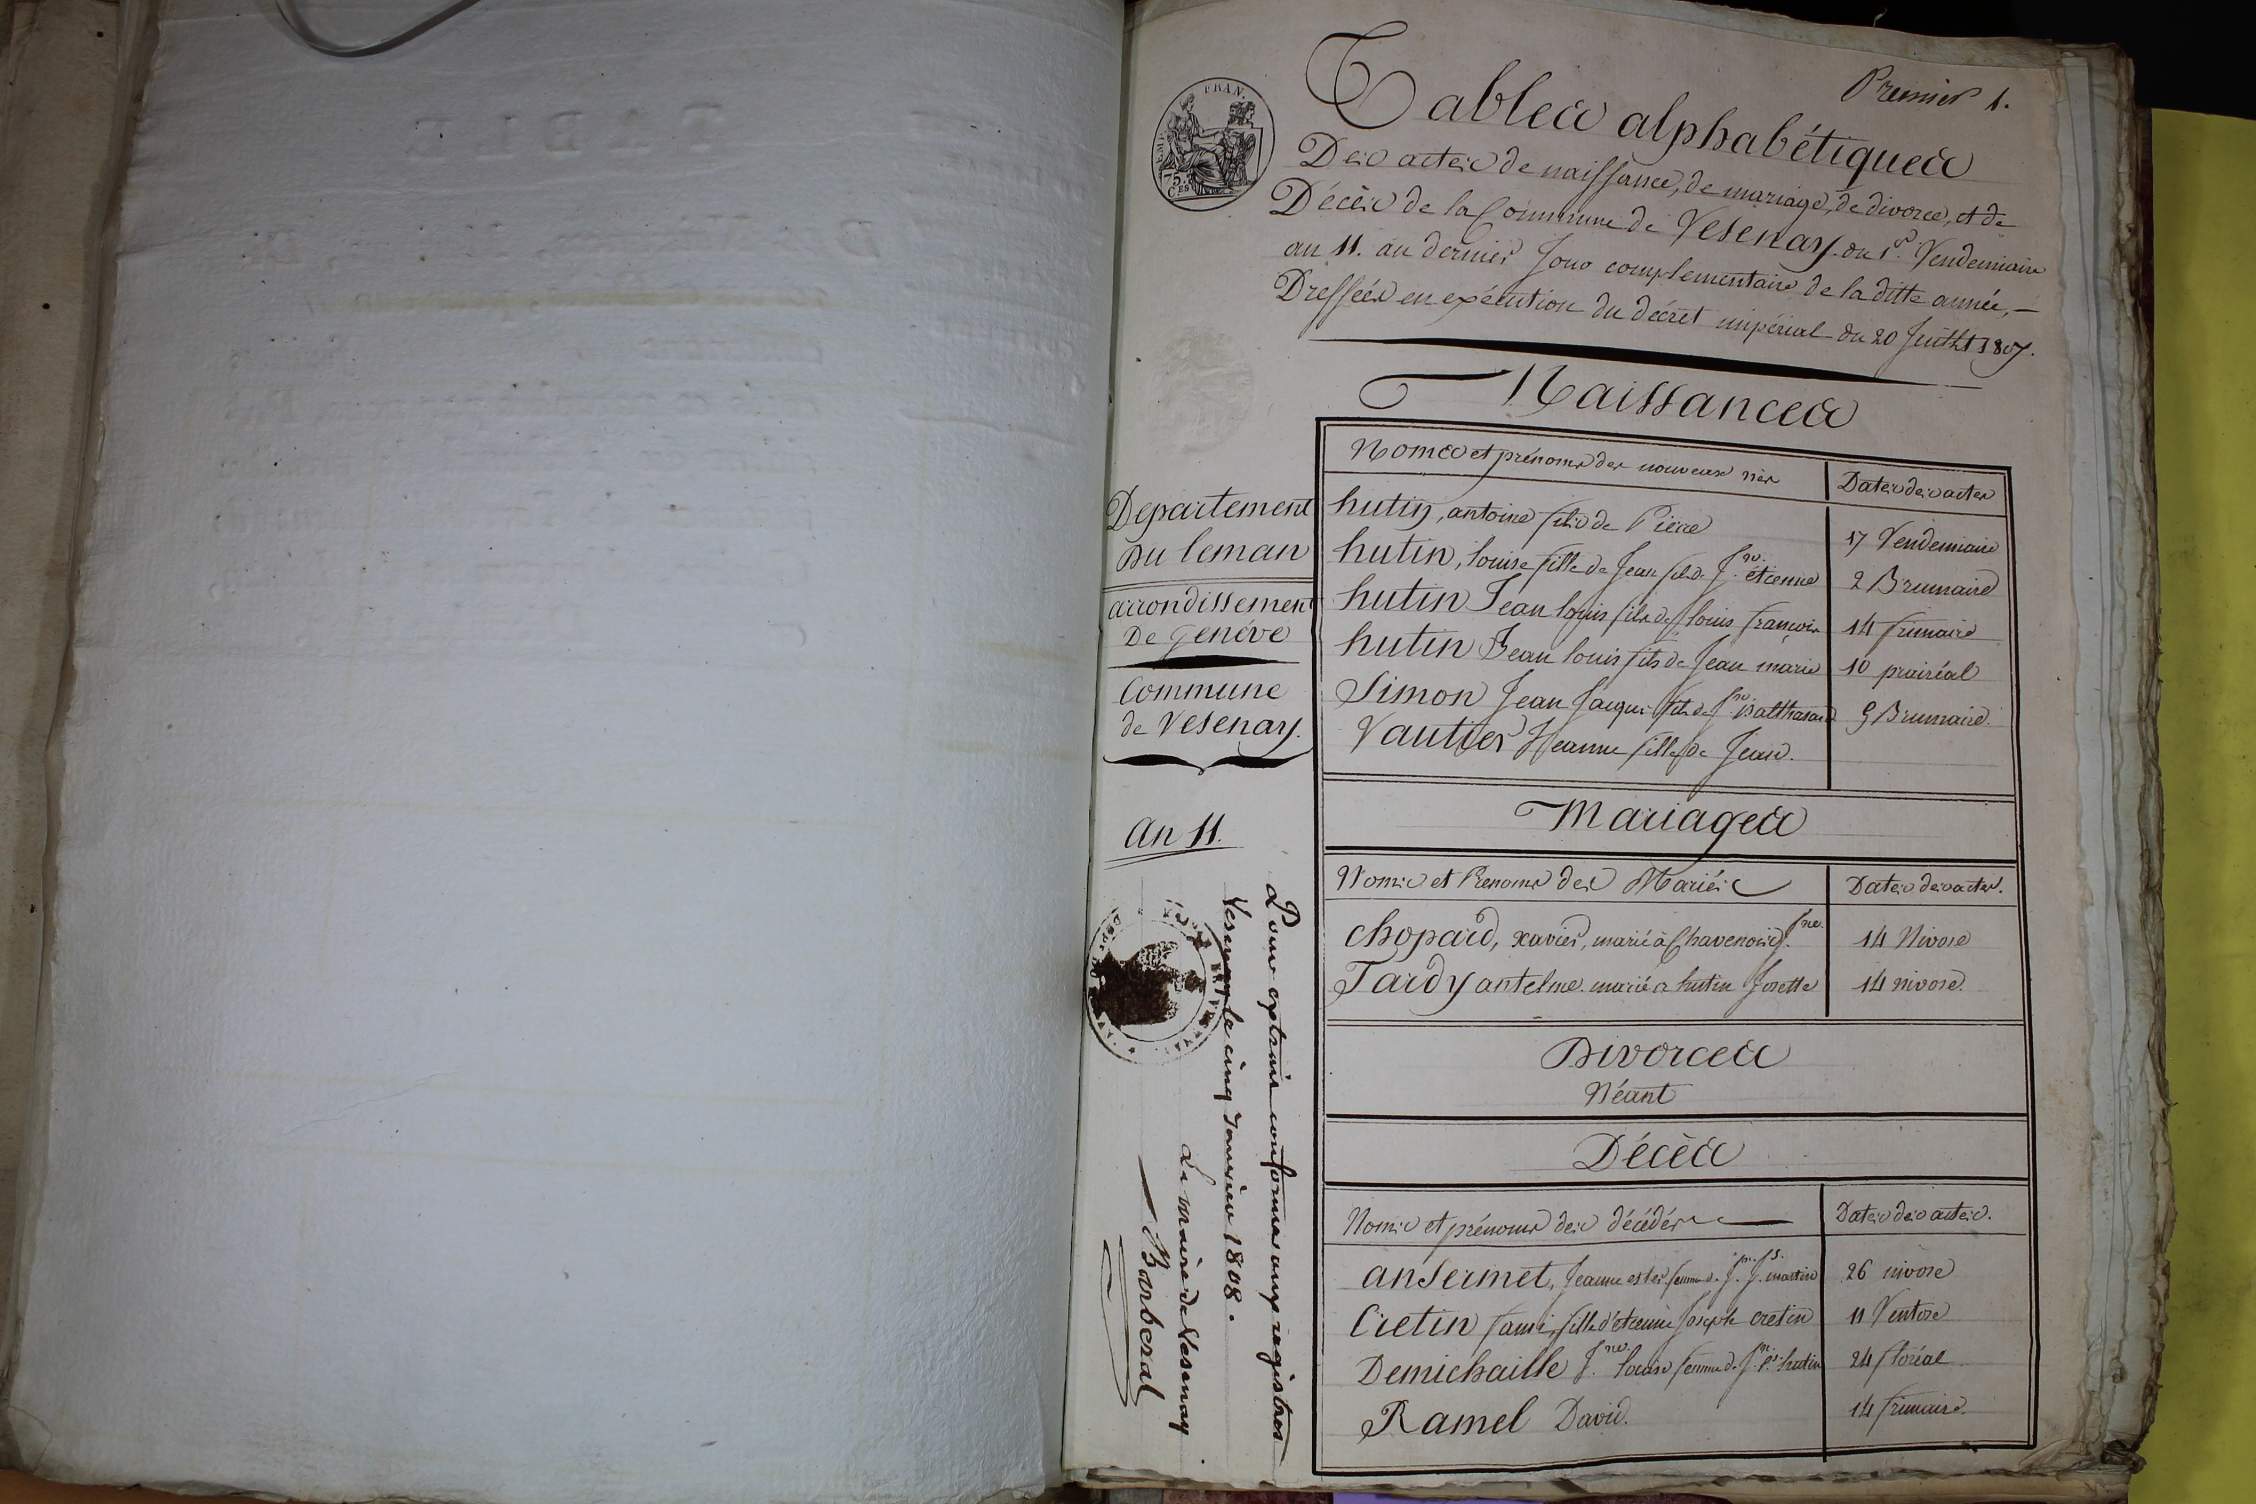 Premier 1.
Tables alphabétiques
Des actes de naissance, de mariage, de divorce, et de
Décès de la Commune de Vesenay. du 1er. Vendemiaire
an 11. au dernier Jour complementaire de la ditte année, —
Dressées en exécution du décret impérial du 20 Juillet 1807.
Naissances
Noms et prénoms des nouveaux nés
Dates des actes
hutin, antoine fils de Pierre
17 Vendemiaire
hutin, louise fille de Jean fils de Jn. étienne
2 Brumaire
hutin Jean louis fils de louis françois
14 frimaire
hutin Jean louis fils de Jean marie
10 prairéal
Simon Jean Jacques fils de Balthasard
9 Brumaire.
Vautier Jeanne fille de Jean.
Mariages
Noms et Prenoms des Mariés
Dates des actes.
Chopard, xavier, marié à Chavenois Jne.
14 Nivose
Tardy antelme. marié a hutin Josette
14 nivose.
Divorces
Néant
Décès
Noms et prénoms des décédés
Dates des actes.
ansermet, Jeanne ester femme de martin
26 nivose
Cretin fille d'etienne Joseph cretin
11 Ventose
Demichaille Jne. louise femme de hutin
24 floréal
Ramel David.
14 frimaire.
Departement
Du leman
arrondissement
De Genéve
Commune
de Vesenay.
an 11.
Pour extrait conforme aux registres
Vesenay le cinq Janvier 1808.
Le maire de Vesenay
Barberat
FRAN.
75.
CES
TABLE